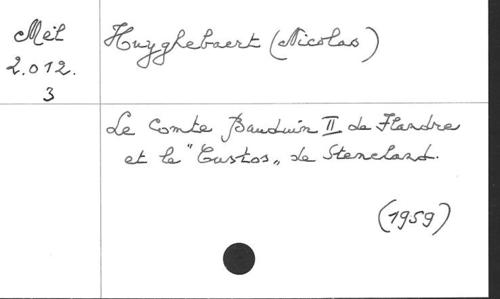 Mél
2.012.
3
Huyghebaert (Nicolas)
Le Comte Bauduin II de Flandre
et le "Custos„ de Steneland.
(1959)